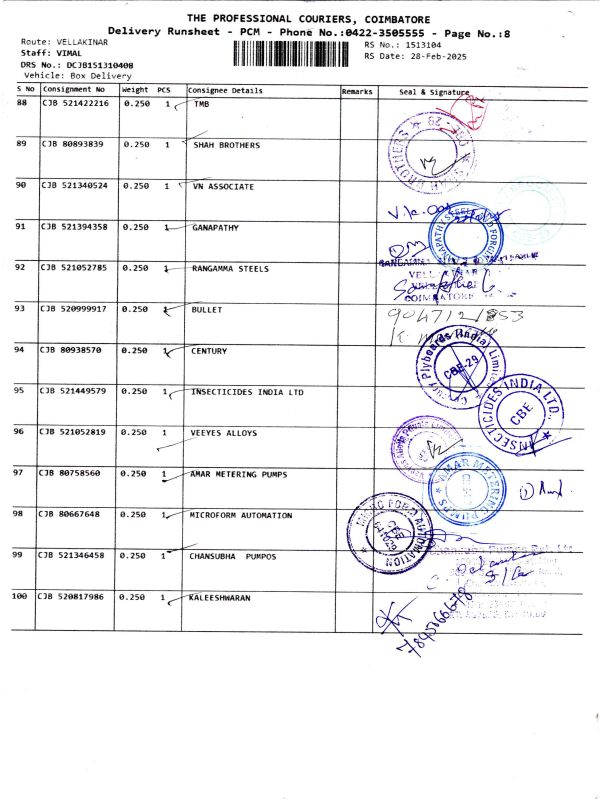 THE PROFESSIONAL COURIERS, COIMBATORE
Delivery Runsheet - PCM - Phone No.:0422-3505555 - Page No.:8
Route: VELLAKINAR
Staff: VIMAL
DRS No.: DCJB151310408
Vehicle: Box Delivery
RS No.: 1513104
RS Date: 28-Feb-2025
S No Consignment No Weight PCS Consignee Details Remarks Seal & Signature
88 CJB 521422216 0.250 1 TMB
89 CJB 80893839 0.250 1 SHAH BROTHERS
90 CJB 521340524 0.250 1 VN ASSOCIATE
91 CJB 521394358 0.250 1 GANAPATHY
92 CJB 521052785 0.250 1 RANGAMMA STEELS
93 CJB 520999917 0.250 1 BULLET
94 CJB 80938570 0.250 1 CENTURY
95 CJB 521449579 0.250 1 INSECTICIDES INDIA LTD
96 CJB 521052819 0.250 1 VEEYES ALLOYS
97 CJB 80758560 0.250 1 AMAR METERING PUMPS
98 CJB 80667648 0.250 1 MICROFORM AUTOMATION
99 CJB 521346458 0.250 1 CHANSUBHA PUMPOS
100 CJB 520817986 0.250 1 KALEESHWARAN
SHAH BROTHERS
RANGAMMA
COIMATORE
Plyboards (India) Limited
CBE-29
INSECTICIDES INDIA LTD.
CBE
METERING PUMPS
MICRO FORM AUTOMATION
CBE